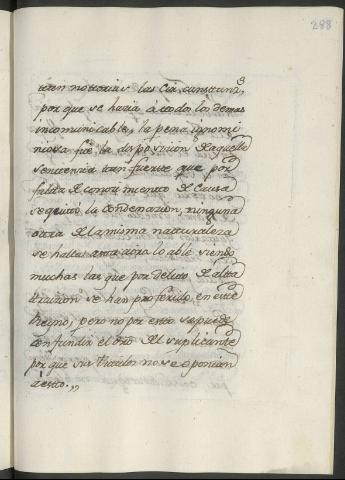 288
tan notorias las Circunstanzˢ,
por que se haria á todos los demas
incomunicable, la pena ignomi
niosa fue la disposicion de aquella
sentencia tan fuerte que por
falta de conocimiento de Causa
se quitó la Condenazion, ninguna
otra de la misma naturaleza
se halla siendo
muchas las que por delito de alta
traicion se han proferido, en este
Reyno; pero no por esto se puede
confundir el oro del suplicante
por que sus titulos no se oponian
á esto.,,